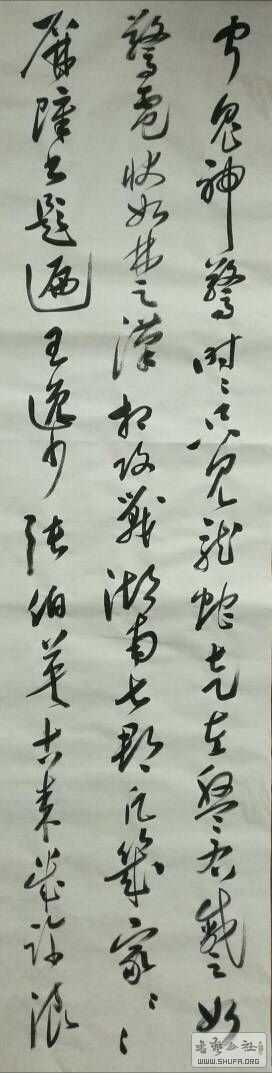 聞鬼神驚時〻只見龍蛇走左盤右蹙如
驚電状如楚漢相攻戰湖南七郡凡幾家〻
屏障書題遍王逸少張伯英古来幾許浪
书艺公社
WWW.SHUFA.ORG